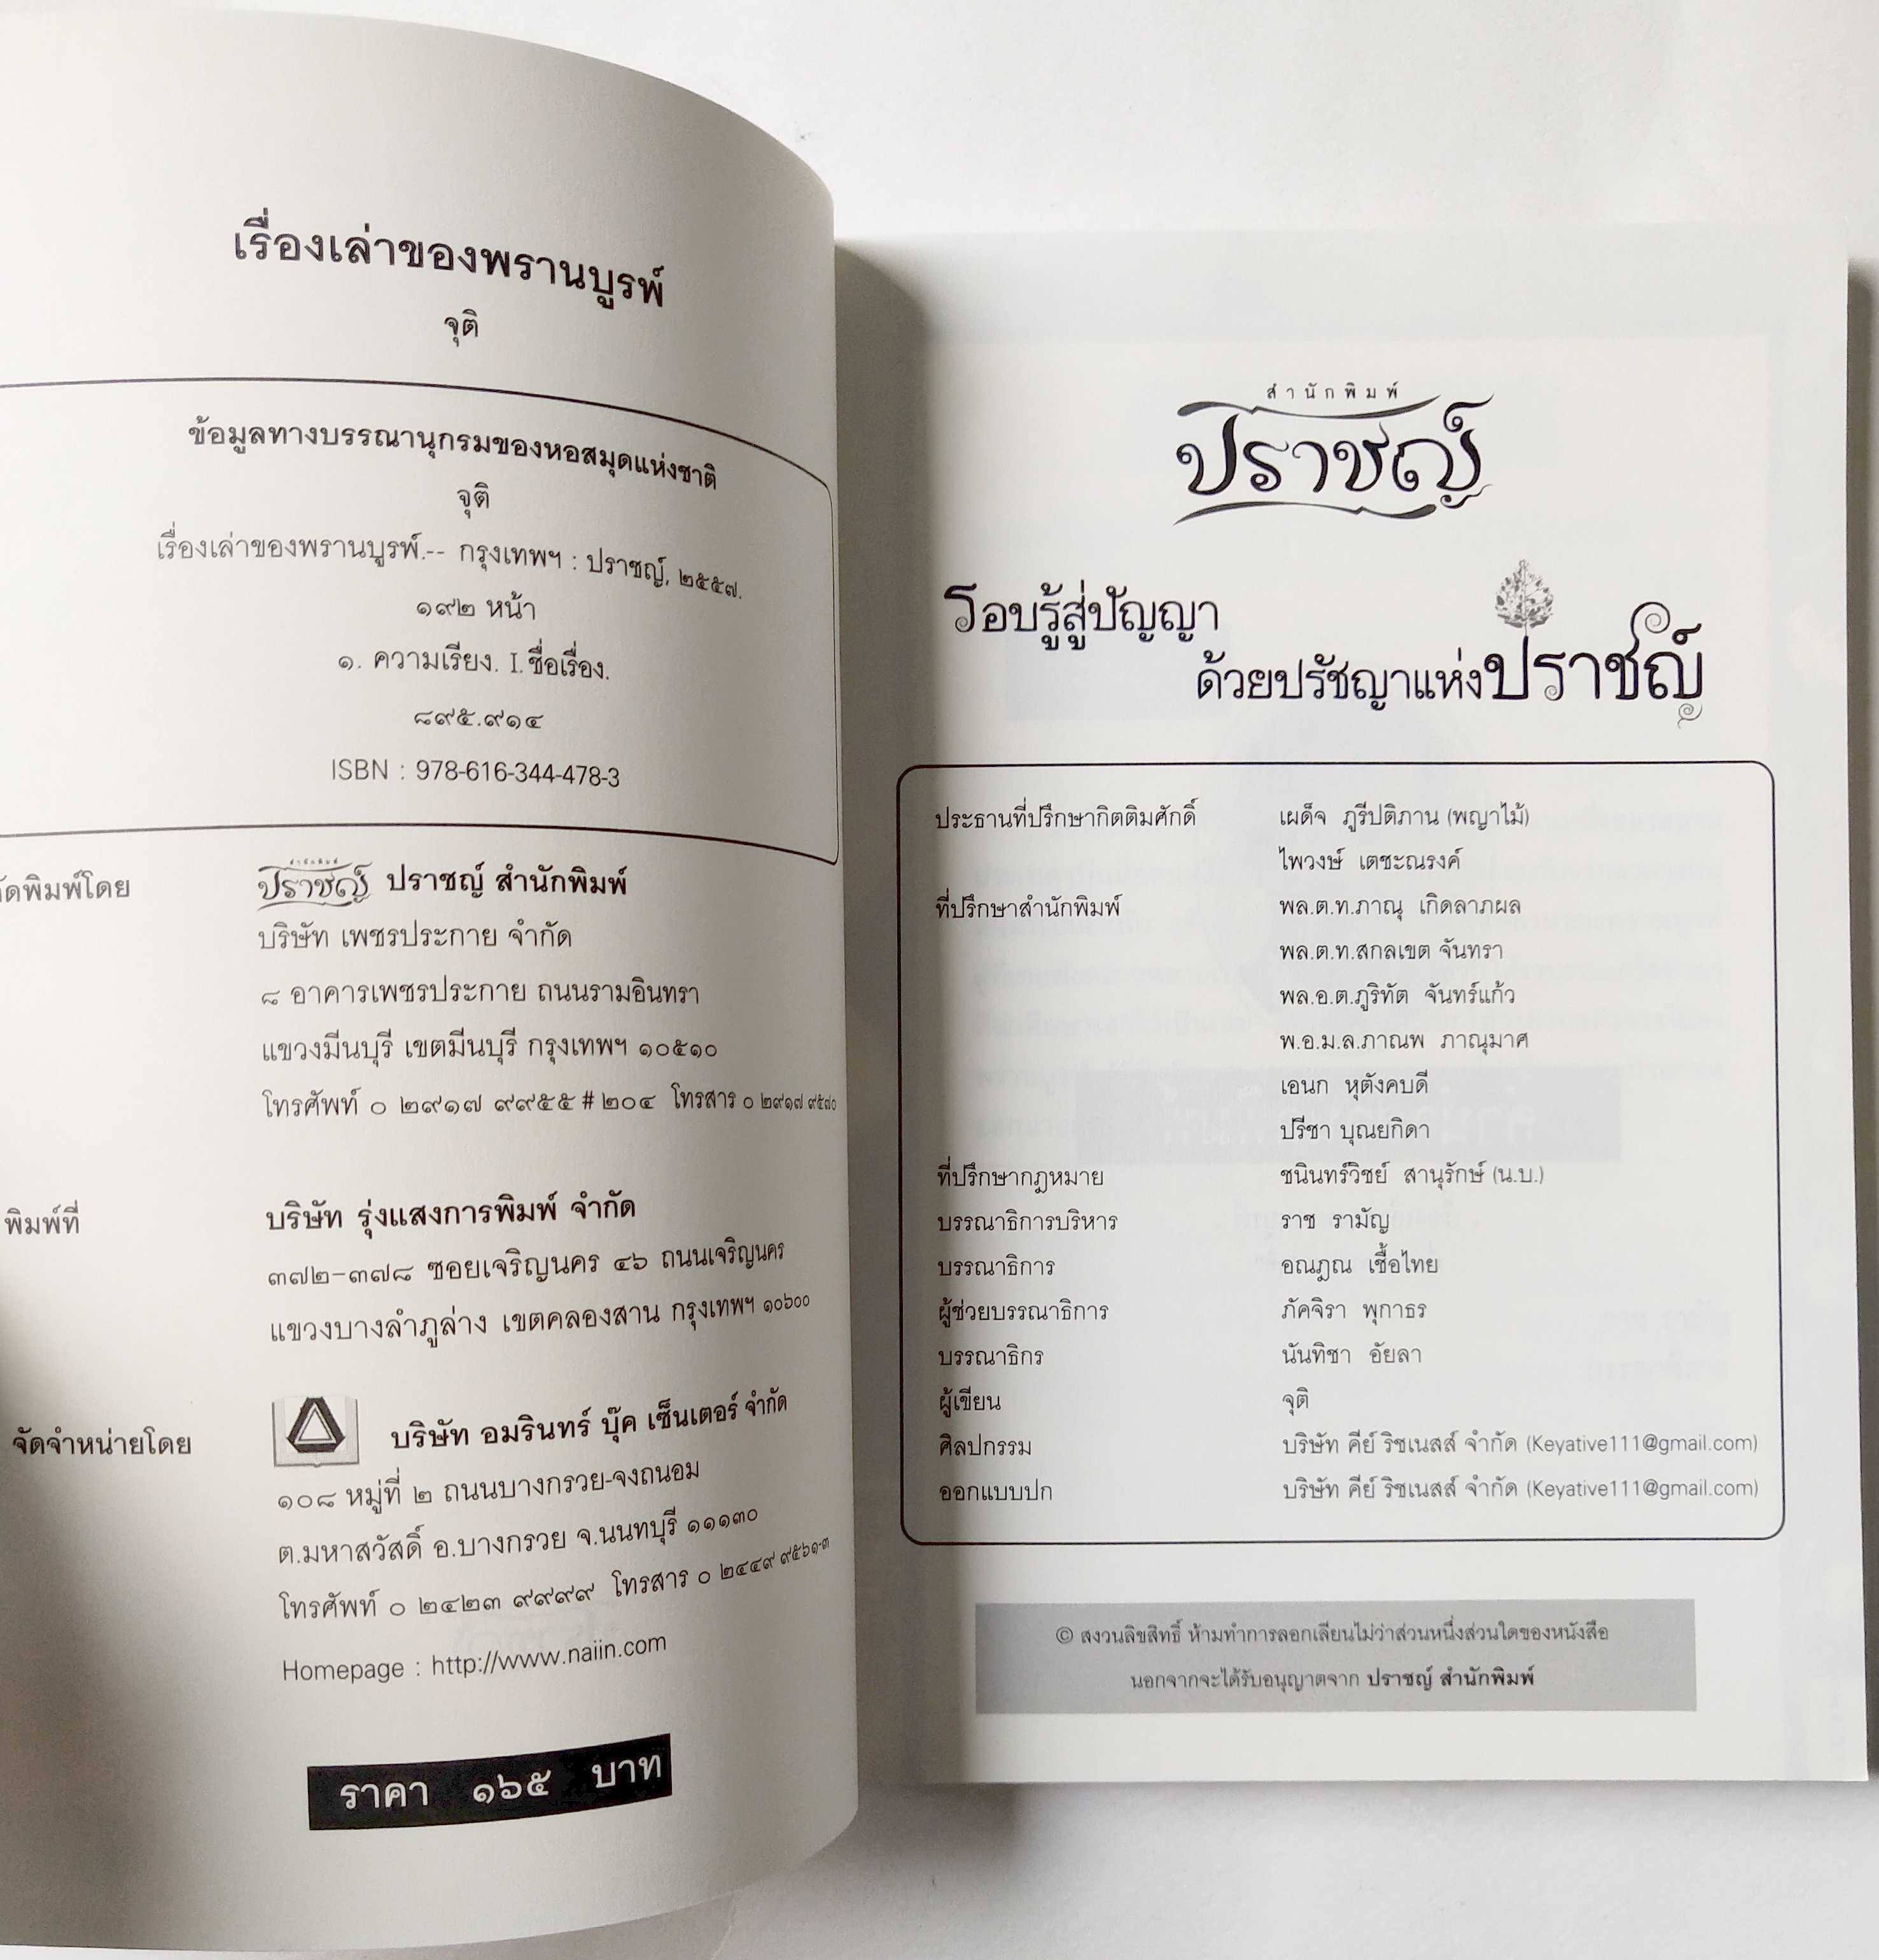 เรื่องเล่าของพรานบูรพ์
จุติ
ข้อมูลทางบรรณานุกรมของหอสมุดแห่งชาติ
จุติ
เรื่องเล่าของพรานบูรพ์.-- กรุงเทพฯ : ปราชญ์, ๒๕๕๗.
๑๙๒ หน้า
๑. ความเรียง. I. ชื่อเรื่อง.
๘๙๕.๙๑๔
ISBN : 978-616-344-478-3
ัดพิมพ์โดย
สำนักพิมพ์
ปราชญ์ ปราชญ์ สำนักพิมพ์
บริษัท เพชรประกาย จำกัด
๘ อาคารเพชรประกาย ถนนรามอินทรา
แขวงมีนบุรี เขตมีนบุรี กรุงเทพฯ ๑๐๕๑๐
โทรศัพท์ ๐ ๒๙๑๗ ๙๙๕๕ # ๒๐๔ โทรสาร ๐ ๒๙๑๗ ๙๕๗๐
พิมพ์ที่ บริษัท รุ่งแสงการพิมพ์ จำกัด
๓๗๒-๓๗๘ ซอยเจริญนคร ๔๖ ถนนเจริญนคร
แขวงบางลำภูล่าง เขตคลองสาน กรุงเทพฯ ๑๐๖๐๐
จัดจำหน่ายโดย บริษัท อมรินทร์ บุ๊ค เซ็นเตอร์ จำกัด
๑๐๘ หมู่ที่ ๒ ถนนบางกรวย-จงถนอม
ต.มหาสวัสดิ์ อ.บางกรวย จ.นนทบุรี ๑๑๑๓๐
โทรศัพท์ ๐ ๒๔๒๓ ๙๙๙๙ โทรสาร ๐ ๒๔๔๙ ๙๕๖๑-๓
Homepage : http://www.naiin.com
ราคา ๑๖๕ บาท
สำนักพิมพ์
ปราชญ์
รอบรู้สู่ปัญญา
ด้วยปรัชญาแห่งปราชญ์
ประธานที่ปรึกษากิตติมศักดิ์ เผด็จ ภูรีปติภาน (พญาไม้)
ไพวงษ์ เตชะณรงค์
ที่ปรึกษาสำนักพิมพ์ พล.ต.ท.ภาณุ เกิดลาภผล
พล.ต.ท.สกลเขต จันทรา
พล.อ.ต.ภูริทัต จันทร์แก้ว
พ.อ.ม.ล.ภาณพ ภาณุมาศ
เอนก หุตังคบดี
ปรีชา บุณยกิดา
ที่ปรึกษากฎหมาย ชนินทร์วิชย์ สานุรักษ์ (น.บ.)
บรรณาธิการบริหาร ราช รามัญ
บรรณาธิการ อณฎณ เชื้อไทย
ผู้ช่วยบรรณาธิการ ภัคจิรา พุกาธร
บรรณาธิกร นันทิชา อัยลา
ผู้เขียน จุติ
ศิลปกรรม บริษัท คีย์ ริชเนสส์ จำกัด (Keyative111@gmail.com)
ออกแบบปก บริษัท คีย์ ริชเนสส์ จำกัด (Keyative111@gmail.com)
© สงวนลิขสิทธิ์ ห้ามทำการลอกเลียนไม่ว่าส่วนหนึ่งส่วนใดของหนังสือ
นอกจากจะได้รับอนุญาตจาก ปราชญ์ สำนักพิมพ์